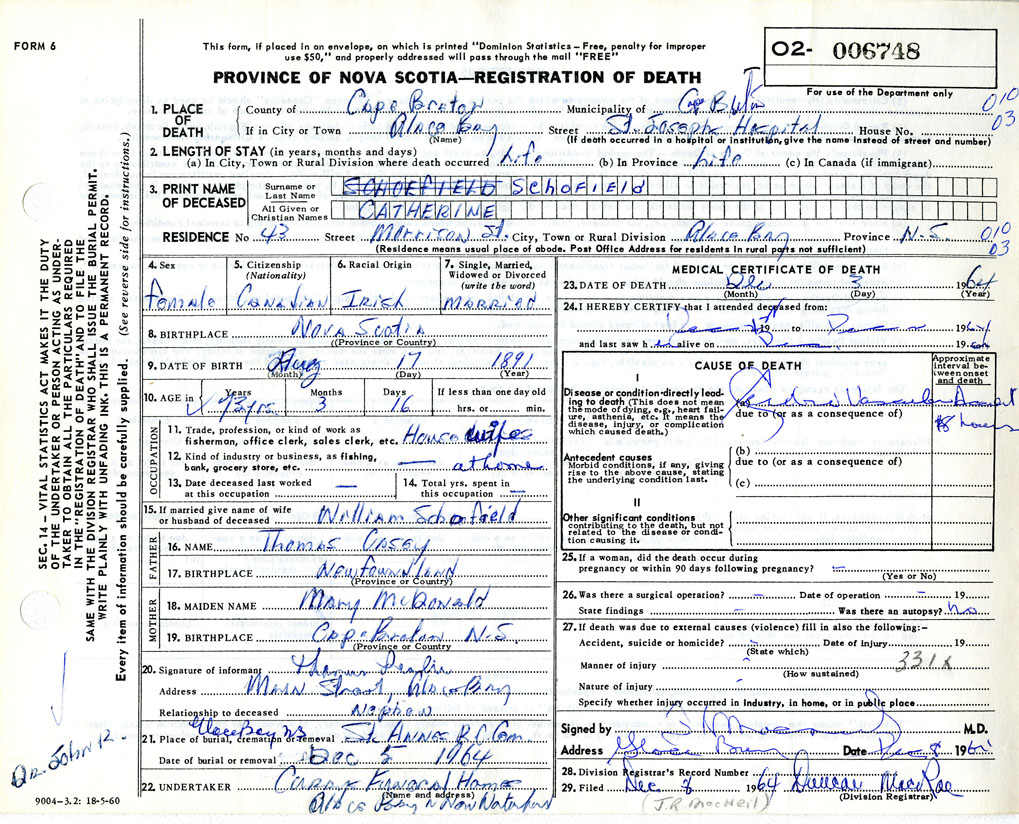 FORM 6
This form, if placed in an envelope, on which is printed "Dominion Statistics—Free, penalty for improper
use $50," and properly addressed will pass through the mail "FREE"
O2- 006748
For use of the Department only
PROVINCE OF NOVA SCOTIA—REGISTRATION OF DEATH
SEC. 14 — VITAL STATISTICS ACT MAKES IT THE DUTY
OF THE UNDERTAKER OR PERSON ACTING AS UNDER-
TAKER TO OBTAIN ALL THE PARTICULARS REQUIRED
IN THE "REGISTRATION OF DEATH" AND TO FILE THE
SAME WITH THE DIVISION REGISTRAR WHO SHALL ISSUE THE BURIAL PERMIT.
WRITE PLAINLY WITH UNFADING INK. THIS IS A PERMANENT RECORD.
Every item of information should be carefully supplied. (See reverse side for instructions.)
1. PLACE OF DEATH County of Cape Breton Municipality of Cape Breton 010
If in City or Town Glace Bay Street St. Josephs Hospital House No. 03
(Name) (If death occurred in a hospital or institution, give the name instead of street and number)
2. LENGTH OF STAY (in years, months and days)
(a) In City, Town or Rural Division where death occurred Life (b) In Province Life (c) In Canada (if immigrant)
3. PRINT NAME OF DECEASED Surname or Last Name SCHOEFIELD SCHOFIELD
All Given or Christian Names CATHERINE
RESIDENCE No 43 Street Morrison St. City, Town or Rural Division Glace Bay Province N-S. 010 03
(Residence means usual place of abode. Post Office Address for residents in rural parts not sufficient)
4. Sex 5. Citizenship (Nationality) 6. Racial Origin 7. Single, Married, Widowed or Divorced (write the word)
Female Canadian Irish Married
8. BIRTHPLACE Nova Scotia
(Province or Country)
9. DATE OF BIRTH Aug 17 1891
(Month) (Day) (Year)
10. AGE in Years Months Days If less than one day old
73 yrs. 3 16 hrs. or min.
OCCUPATION
11. Trade, profession, or kind of work as
fisherman, office clerk, sales clerk, etc. House wife
12. Kind of industry or business, as fishing,
bank, grocery store, etc. — at home
13. Date deceased last worked at this occupation —
14. Total yrs. spent in this occupation —
15. If married give name of wife
or husband of deceased William Schofield
FATHER
16. NAME Thomas Casey
17. BIRTHPLACE Newfoundland
(Province or Country)
MOTHER
18. MAIDEN NAME Mary McDonald
19. BIRTHPLACE Cape Breton N-S.
(Province or Country
20. Signature of informant
Address Main Street, Glace Bay
Relationship to deceased Nephew
Glace Bay NS
21. Place of burial, cremation or removal St. Anne R.C. Cem.
Date of burial or removal Dec 5 1964
22. UNDERTAKER Curran Funeral Home
(Name and address)
Glace Bay n New Waterford
9004—3.2: 18-5-60
Dr John R.
MEDICAL CERTIFICATE OF DEATH
23. DATE OF DEATH Dec 3 1964
(Month) (Day) (Year)
24. I HEREBY CERTIFY that I attended deceased from:
19 to 1964
and last saw h alive on 1964
CAUSE OF DEATH
Approximate interval between onset and death
I
Disease or condition directly leading to death (This does not mean the mode of dying, e.g., heart failure, asthenia, etc. It means the disease, injury, or complication which caused death.)
(a) Vascular
due to (or as a consequence of)
8 hours
Antecedent causes
Morbid conditions, if any, giving rise to the above cause, stating the underlying condition last.
(b)
due to (or as a consequence of)
(c)
II
Other significant conditions
contributing to the death, but not related to the disease or condition causing it.
25. If a woman, did the death occur during
pregnancy or within 90 days following pregnancy? —
(Yes or No)
26. Was there a surgical operation? — Date of operation — 19
State findings — Was there an autopsy? No
27. If death was due to external causes (violence) fill in also the following:—
Accident, suicide or homicide? — Date of injury 19
(State which)
331X
Manner of injury -
(How sustained)
Nature of injury -
Specify whether injury occurred in Industry, in home, or in public place
Signed by M.D.
Address Glace Bay Date Dec 8 1964
28. Division Registrar's Record Number
29. Filed Dec 8 1964 Duncan MacRae
(Division Registrar)
(J.R. MacNeil)